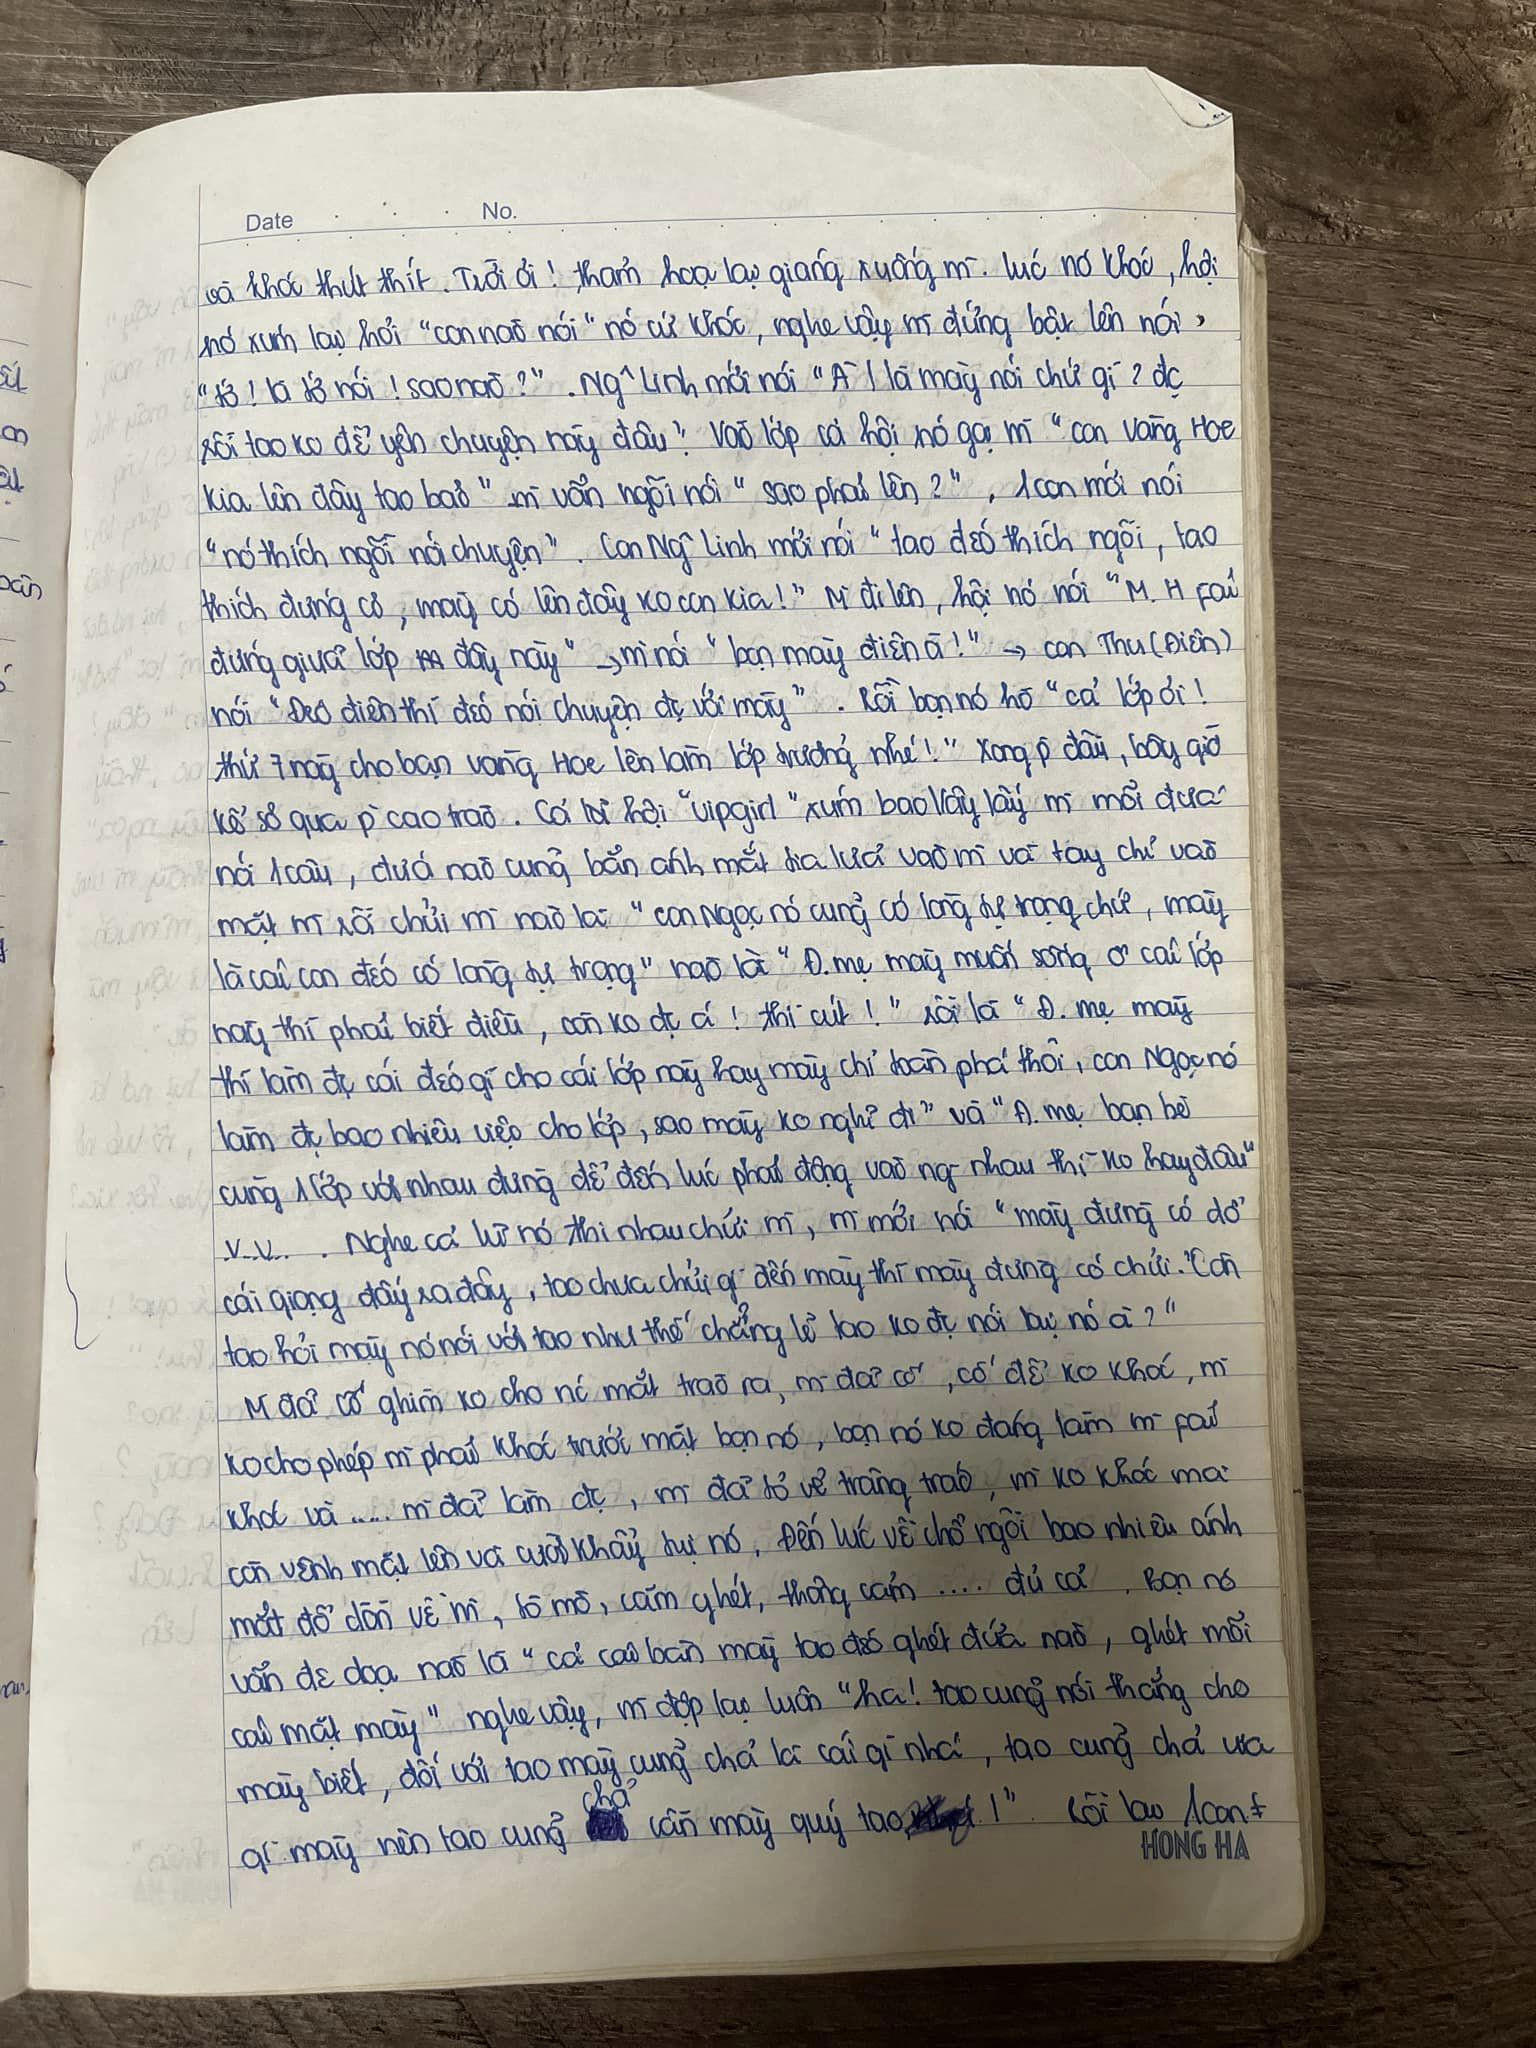 Date No.
và khóc thút thít. Trời ơi! thảm hoạ lại giáng xuống mì. lúc nó khóc, hội
nó xúm lại hỏi "con nào nói" nó cứ khóc, nghe vậy mì đứng bật lên nói
"tớ! là tớ nói! sao nào?". Ng~ Linh mới nói "À! là mày nói chứ gì? đc
rồi tao ko để yên chuyện này đâu". Vào lớp cả hội nó gọi mì "con Vàng Hoe
kia lên đây tao bảo" mì vẫn ngồi nói "sao phải lên?", 1 con mới nói
"nó thích ngồi nói chuyện". Con Ng~ Linh mới nói "tao đéo thích ngồi, tao
thích đứng cơ, mày có lên đây ko con kia!" Mì đi lên, hội nó nói "M. H fải
đứng giữa lớp đây này" → mì nói "bạn mày điên à!" → con Thu (Điên)
nói "Đéo điên thì đéo nói chuyện đc với mày". Rồi bọn nó hô "cả lớp ơi!
thứ 7 này cho bạn vàng Hoe lên làm lớp trưởng nhé!" Xong p đầu, bây giờ
kể sơ qua p cao trào. Cả lũ hội "vipgirl" xúm bao vây lấy mì mỗi đứa
nói 1 câu, đứa nào cũng bắn ánh mắt tia lửa vào mì và tay chỉ vào
mặt mì rồi chửi mì nào là "con Ngọc nó cũng có lòng tự trọng chứ, mày
là cái con đéo có lòng tự trọng" nào là "Đ. mẹ mày muốn sống ở cái lớp
này thì phải biết điều, còn ko đc á! thì cút!" rồi là "Đ. mẹ mày
thì làm đc cái đéo gì cho cái lớp này hay mày chỉ toàn phá thôi, con Ngọc nó
làm đc bao nhiêu việc cho lớp, sao mày ko nghĩ đi" và "Đ. mẹ bạn bè
cùng 1 lớp với nhau đừng để đến lúc phải động vào ng~ nhau thì ko hay đâu"
v..v... . Nghe cả lũ nó thi nhau chửi mì, mì mới nói "mày đừng có dở
cái giọng đấy ra đây, tao chưa chửi gì đến mày thì mày đừng có chửi. Còn
tao hỏi mày nó nói với tao như thế chẳng lẽ tao ko đc nói lại nó à?"
Mì đã cố ghìm ko cho nc mắt trào ra, mì đã cố, cố để ko khóc, mì
ko cho phép mì phải khóc trước mặt bọn nó, bọn nó ko đáng làm mì fải
khóc và ..... mì đã làm đc, mì đã tỏ vẻ tráng tráo, mì ko khóc mà
còn vênh mặt lên và cười khẩy tụi nó. Đến lúc về chỗ ngồi bao nhiêu ánh
mắt đổ dồn về mì, tò mò, căm ghét, thông cảm .... đủ cả. Bọn nó
vẫn đe doạ nào là "cả cái bàn mày tao đéo ghét đứa nào, ghét mỗi
cái mặt mày" nghe vậy, mì độp lại luôn "ha! tao cũng nói thẳng cho
mày biết, đối với tao mày cũng chả là cái gì nhá, tao cũng chả ưa
gì mày nên tao cũng chả cần mày quý tao!" Rồi lại 1 con t
HONG HA